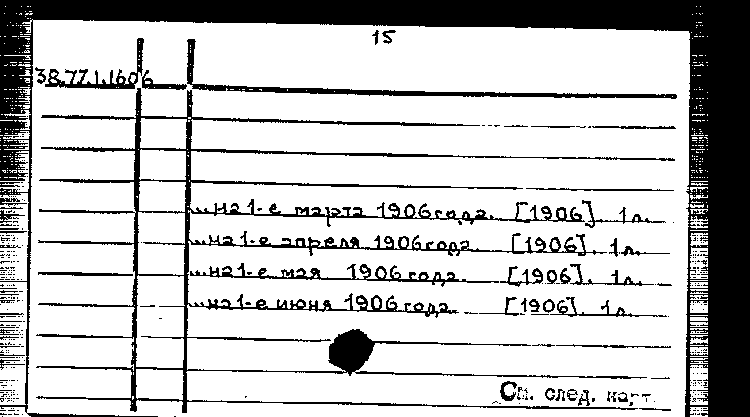 15
38.77.1.1606
...на 1-е марта 1906 года. [1906]. 1 л.
...на 1-е апреля 1906 года. [1906]. 1 л.
...на 1-е мая 1906 года. [1906]. 1 л.
...на 1-е июня 1906 года. [1906]. 1 л.
См. след. карт.